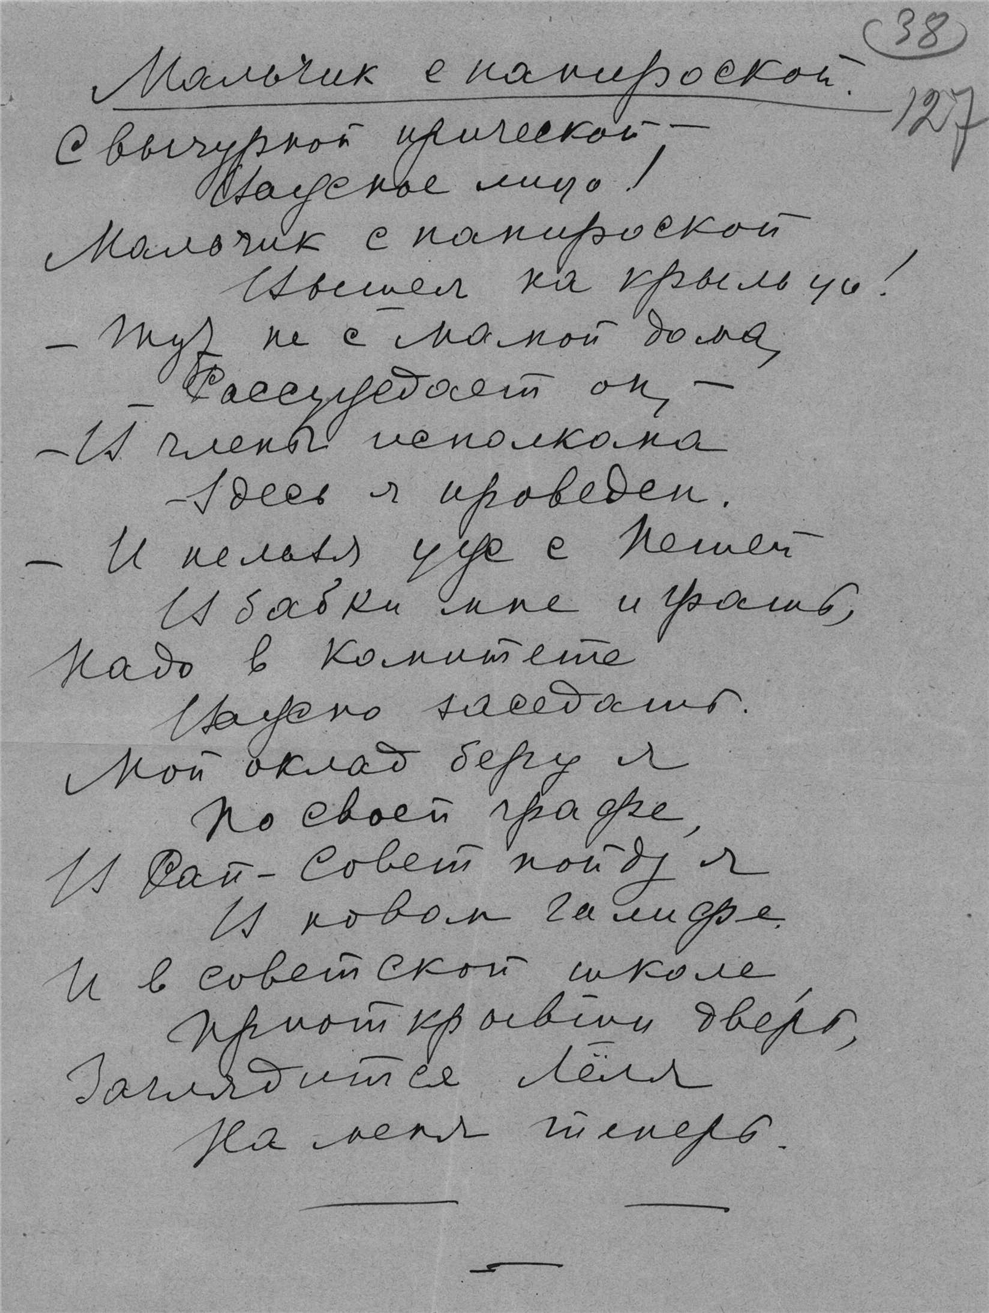 38
127
Мальчик с папироской.
С вычурной прической —
Важное лицо!
Мальчик с папироской
Вышел на крыльцо!
— Тут не с мамой дома,
Рассуждает он, —
— В члены исполкома
Здесь я проведен.
— И нельзя уже с Петей
В бабки мне играть,
Надо в комитете
Важно заседать.
Мой оклад беру я
По своей графе,
В Рай-Совет пойду я
В новом галифе.
И в советской школе,
Приоткрывши дверь,
Заглядится Лёля
На меня теперь.